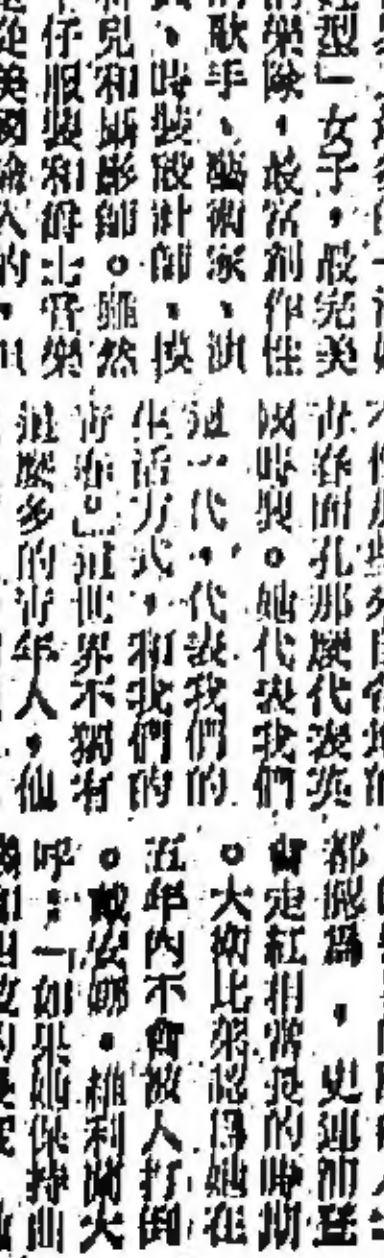 型」女子,最完美
樂隊,最富創作性
歌手、藝術家、演
、時裝設計師、模
兒和攝影師。雖然
仔服裝和爵士音樂
從美國輸入的,但
青春面孔那麼代表英
國時裝。她代表我們
這一代,代表我們的
生活方式,和我們的
青春」這世界不獨有
這麼多的青年人,仙
都認爲,史連登
會走紅相當長的時期
。大衛比梨認爲她在
五年內不會被人打倒
。戴安娜・維利蘭大
呼:「如果她保持面